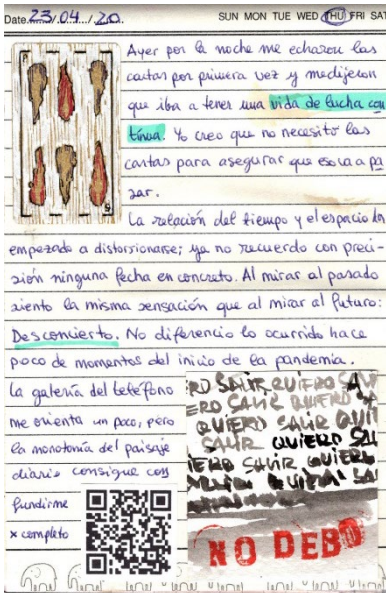 Date 23/04/20. SUN MON TUE WED THU FRI SAT
Ayer por la noche me echaron las
cartas por primera vez y me dijeron
que iba a tener una vida de lucha con
tínua. Yo creo que no necesito las
cartas para asegurar que eso va a pa
sar.
La relación del tiempo y el espacio han
empezado a distorsionarse; ya no recuerdo con preci-
sión ninguna fecha en concreto. Al mirar al pasado
siento la misma sensación que al mirar al futuro:
Desconcierto. No diferencio lo ocurrido hace
poco de momentos del inicio de la pandemia.
La galería del teléfono
me orienta un poco, pero
la monotonía del paisaje
diario consigue con
fundirme
x completo
RO SALIR QUIERO SAL
ERO SALIR QUIERO
QUIERO SALIR QUI
SALIR QUIERO SAL
IERO SALIR QUIERO
QUIERO SAL
NO DEBO